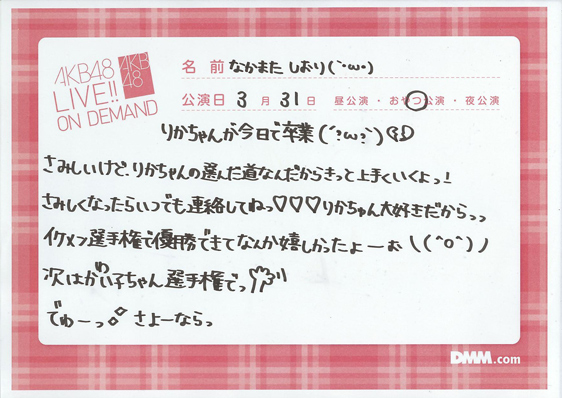 AKB48
LIVE!!
ON DEMAND
AKB
48
名 前 なかまた しおり(`･ω･)
公演日 3 月 31 日 昼公演 ・ おやつ公演 ・ 夜公演
りかちゃんが今日で卒業(´;ω;`)
さみしいけど、りかちゃんの選んだ道なんだからきっと上手くいくよっ!
さみしくなったらいつでも連絡してねっ♡♡♡りかちゃん大好きだからっっ
イケメン選手権で優勝できてなんか嬉しかったよーお \(^o^)ノ
次はかわい子ちゃん選手権でっ
でゎーっ さよーならっ
DMM.com